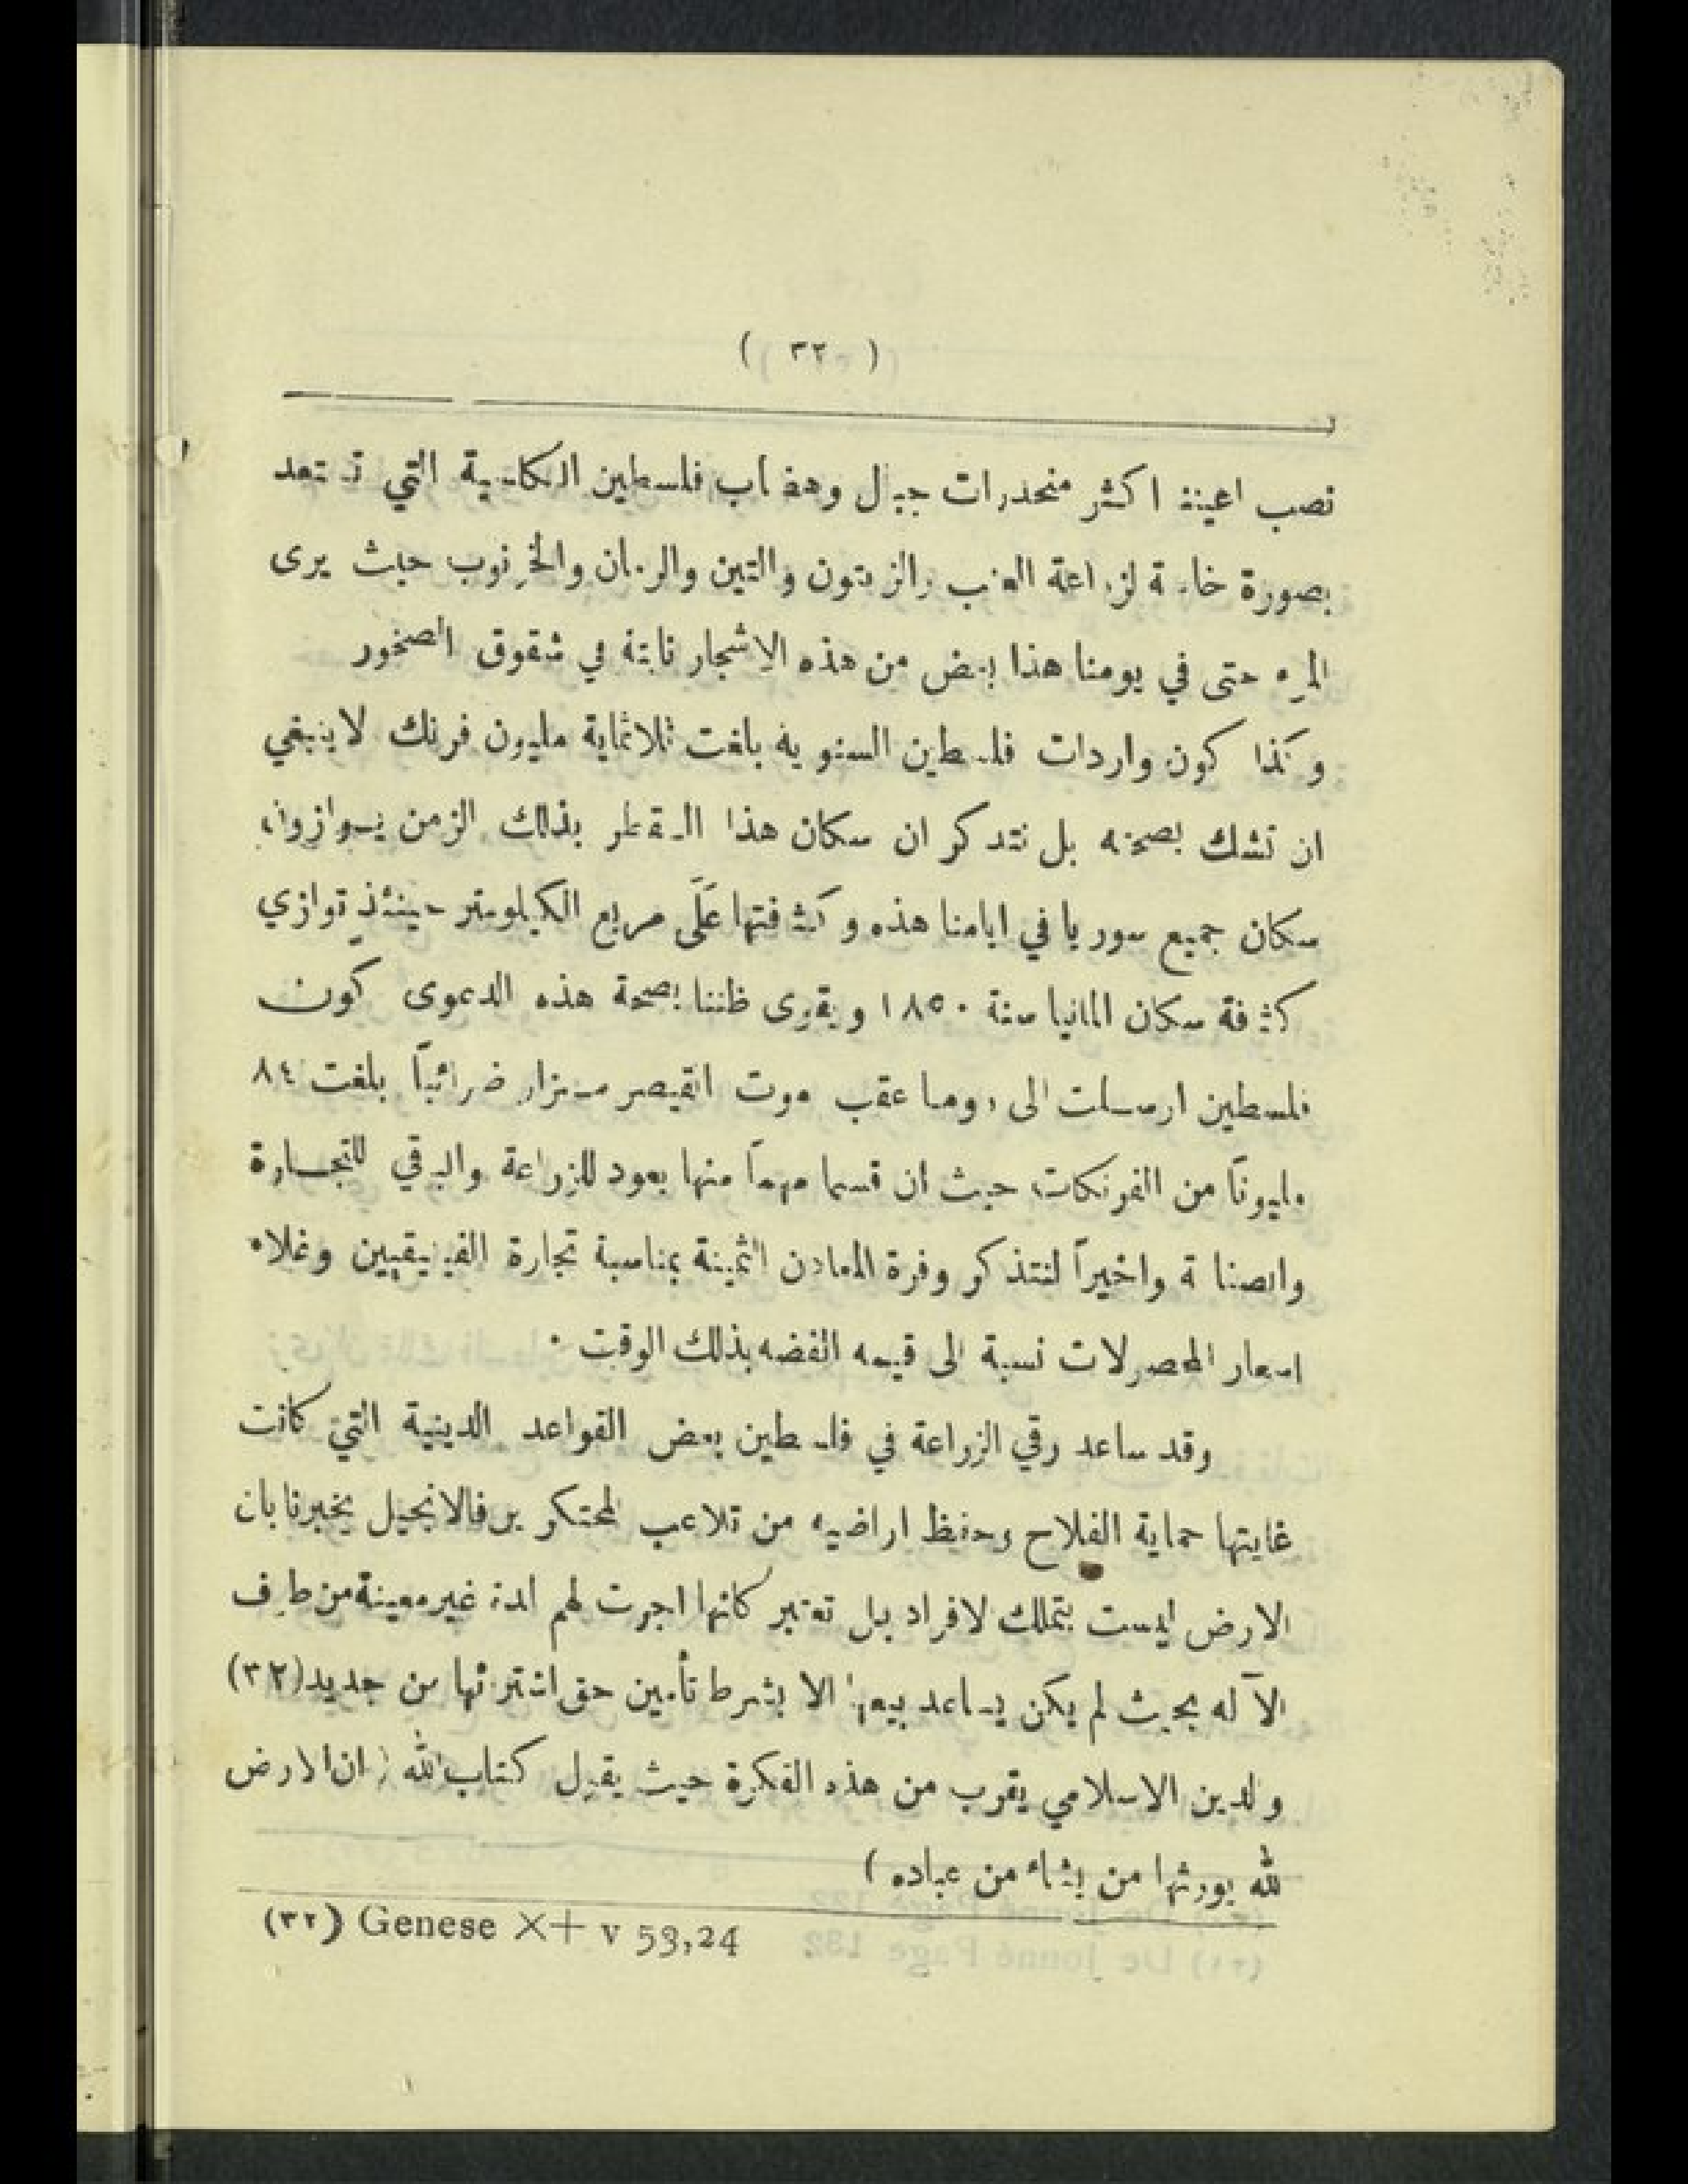 ( ٣٢ )
نصب اعيننا اكثر منحدرات جبال وهضاب فلسطين الكلسية التي تستعد
بصورة خاصة لزراعة العنب والزيتون والتين والرمان والخرنوب حيث يرى
المرء حتى في يومنا هذا بعض من هذه الاشجار نابتة في شقوق الصخور
وكذا كون واردات فلسطين السنويه بلغت ثلاثماية مليون فرنك لاينبغي
ان نشك بصحته بل نتدكر ان سكان هذا القطر بذلك الزمن يوازون
سكان جميع سوريا في ايامنا هذه وكثافتها عَلَى مربع الكيلومتر حينئذٍ توازي
كثافة سكان المانيا سنة ١٨٥٠ ويقوى ظننا بصحة هذه الدعوى كون
فلسطين ارسلت الى روما عقب موت القيصر سزار ضرائباً بلغت ٨٤
مليوناً من الفرنكات حيث ان قسما مهماً منها يعود للزراعة والباقي للتجارة
والصناعة واخيراً لنتذكر وفرة المعادن الثمينة بمناسبة تجارة الفينيقيين وغلاء
اسعار المحصولات نسبة الى قيمه الفضه بذلك الوقت ·
وقد ساعد رقي الزراعة في فلسطين بعض القواعد الدينية التي كانت
غايتها حماية الفلاح وحفظ اراضيه من تلاعب المحتكرين فالانجيل يخبرنا بان
الارض ليست بتملك لافراد بل تعتبر كانها اجرت لهم لمدة غير معينة من طرف
الآله بحيث لم يكن يساعد بيعها الا بشرط تأمين حق اشترائها من جديد (٣٢)
والدين الاسلامي يقرب من هذه الفكرة حيث يقول كتاب الله ( ان الارض
لله يورثها من يشاء من عباده )
(٣٢) Genese X+ v 53,24